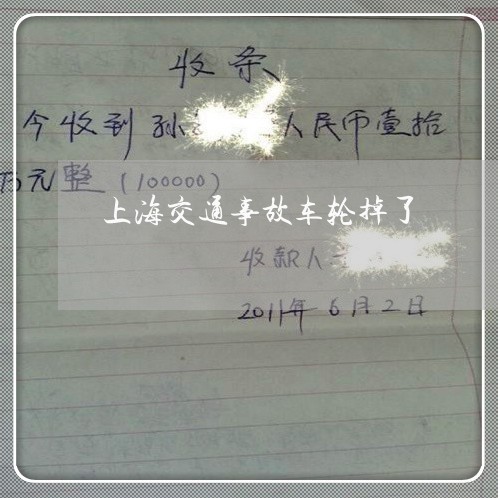 收条
今收到孙 人民币壹拾
万元整（100000）
上海交通事故车轮掉了
收款人
2011年6月2日